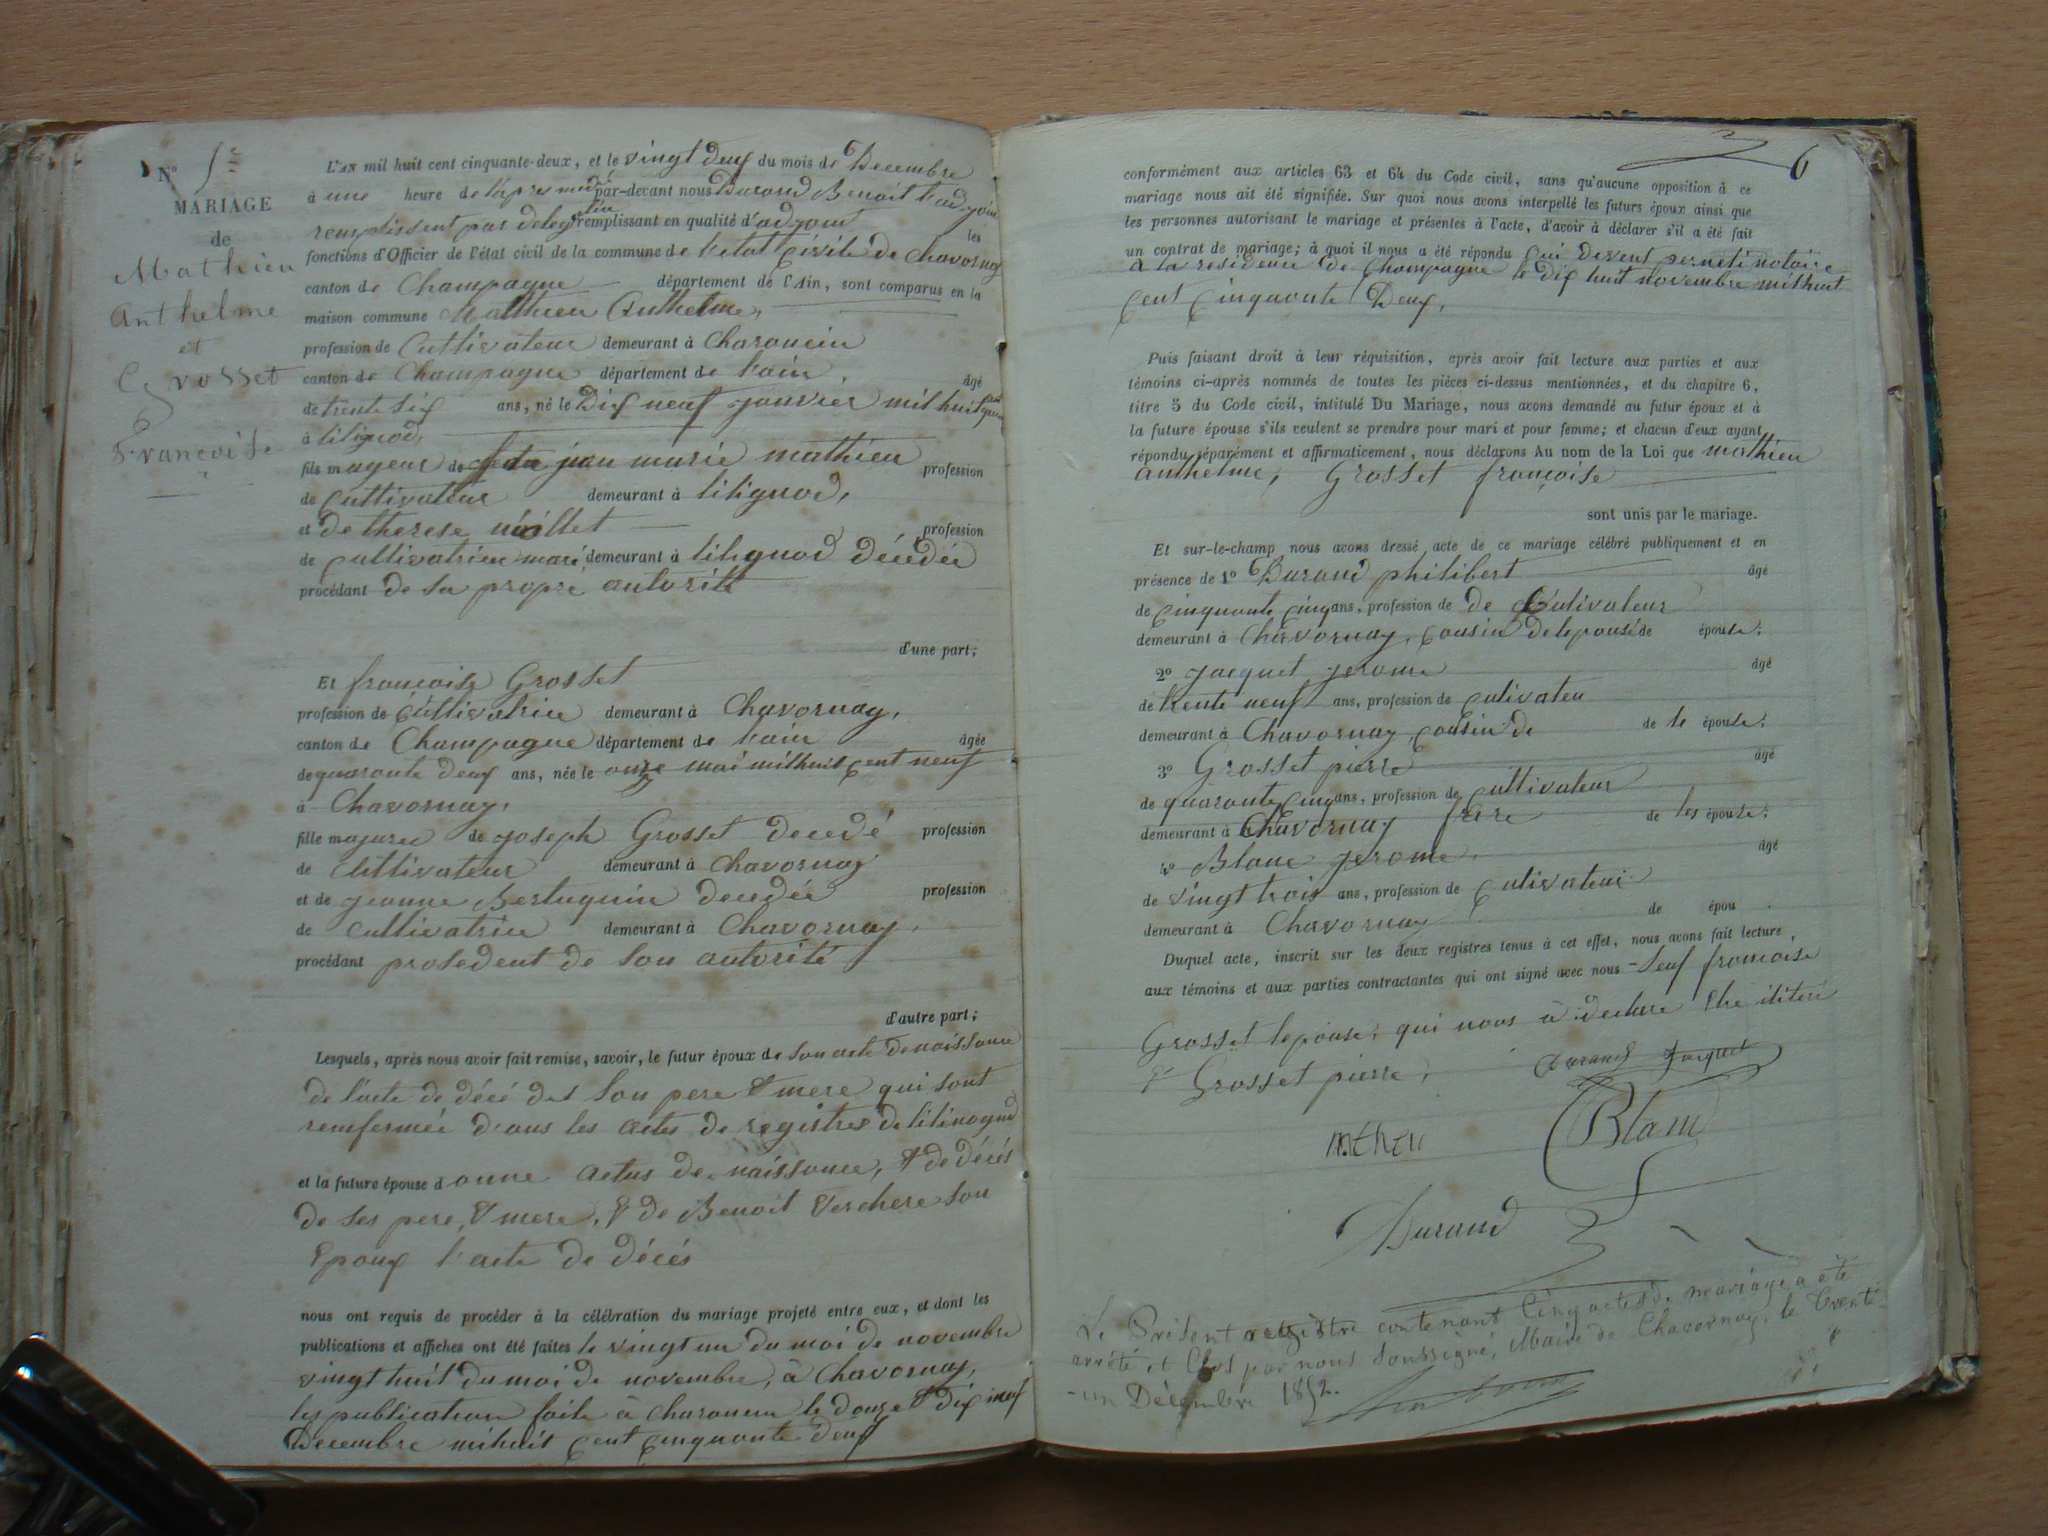 N° 5e
MARIAGE
de
Mathieu
Anthelme
et
Grosset
Françoise
L'AN mil huit cent cinquante-deux, et le vingt deux du mois de Decembre
à une heure de l'apres midi par-devant nous Durand Benoit l'adjoin
remplissent par delegation remplissant en qualité d'adjoint les
fonctions d'Officier de l'état civil de la commune de l'etat Civile de Chavornay
canton de Champagne département de l'Ain, sont comparus en la
maison commune Matthieu Anthelme,
profession de Cultivateur demeurant à Charoncin
canton de Champagne département de l'ain, âgé
de trente six ans, né le Dix neuf janvier mil huit cent
à lilignod,
fils mageur de feu jean marie mathieu profession
de Cultivateur demeurant à lilignod,
et de therese miollet profession
de cultivatrice demeurant à lilignod décédée
procédant de sa propre autorité
d'une part;
Et francoise Grosset
profession de Cultivatrice demeurant à Chavornay,
canton de Champagne département de l'ain âgée
de quarante deux ans, née le onze mai mil huit cent neuf
à Chavornay,
fille majure de joseph Grosset decedé profession
de Cultivateur demeurant à Chavornay
et de jeanne Berluquin decedée profession
de cultivatrice demeurant à Chavornay,
procédant prosedent de son autorité
d'autre part;
Lesquels, après nous avoir fait remise, savoir, le futur époux de son acte de naissance
de l'acte de décé des son pere & mere qui sont
remfermée d'ans les actes de registres de lilinogod
et la future épouse donne actus de naissance, & de décés
de ses pere, & mere, & de Benoit Verchere son
Epoux l'acte de décés
nous ont requis de procéder à la célébration du mariage projeté entre eux, et dont les
publications et affiches ont été faites le vingt un du moi de novembre
vingt huit du moi de novembre, à Chavornay,
les publication faite à charoncin le douze & dix neuf
Decembre mil huit cent cinquante deux
6
conformément aux articles 63 et 64 du Code civil, sans qu'aucune opposition à ce
mariage nous ait été signifiée. Sur quoi nous avons interpellé les futurs époux ainsi que
les personnes autorisant le mariage et présentes à l'acte, d'avoir à déclarer s'il a été fait
un contrat de mariage; à quoi il nous a été répondu Oui devent perneti notaire
a la residence de Champagne le dix huit novembre mil huit
Cent Cinquante Deux,
Puis faisant droit à leur réquisition, après avoir fait lecture aux parties et aux
témoins ci-après nommés de toutes les pièces ci-dessus mentionnées, et du chapitre 6,
titre 5 du Code civil, intitulé Du Mariage, nous avons demandé au futur époux et à
la future épouse s'ils veulent se prendre pour mari et pour femme; et chacun d'eux ayant
répondu séparément et affirmativement, nous déclarons Au nom de la Loi que mathieu
anthelme, Grosset françoise
sont unis par le mariage.
Et sur-le-champ nous avons dressé acte de ce mariage célébré publiquement et en
présence de 1° Durand philibert âgé
de Cinquante Cinq ans, profession de de Cultivateur
demeurant à Chavornay, cousin de lepouse de épouse;
2° jacquet jerome âgé
de trente neuf ans, profession de cultivateu
demeurant à Chavornay, cousin de de le épouse;
3° Grosset pierre âgé
de quarante Cinq ans, profession de Cultivateur
demeurant à Chavornay frere de les épouse;
4° Blanc jerome, âgé
de vingt trois ans, profession de Cultivateur
demeurant à Chavornay de épou
Duquel acte, inscrit sur les deux registres tenus à cet effet, nous avons fait lecture
aux témoins et aux parties contractantes qui ont signé avec nous - seuf francoise
Grosset lepouse, qui nous à declare Etre iliteré
& Grosset pierre,
Durand Jacquet
Blanc
matheu
Durand
Le Présent registre contenant Cinq actes de mariage a été
arrêté et Clos par nous soussigné, Maire de Chavornay, le trente-
-un Décembre 1852.